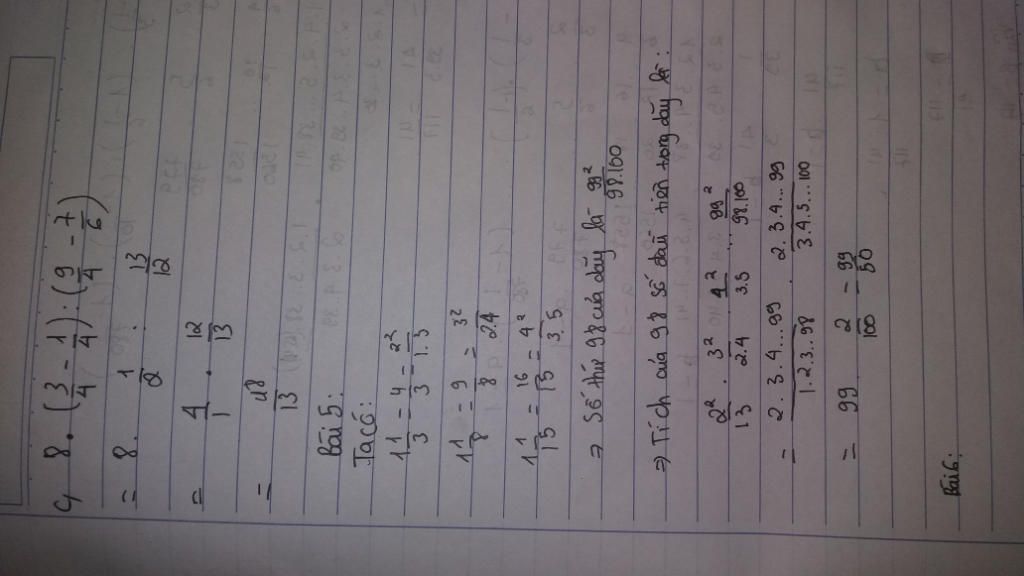 c, 8 . (3/4 - 1/4) : (9/4 - 7/6)
= 8 . 1/2 : 13/12
= 4/1 . 12/13
= 48/13
Bài 5:
Ta có:
1 1/3 = 4/3 = 2²/1.3
1 1/8 = 9/8 = 3²/2.4
1 1/15 = 16/15 = 4²/3.5
⇒ Số thứ 98 của dãy là 99²/98.100
⇒ Tích của 98 số đầu tiên trong dãy là:
2²/1.3 . 3²/2.4 . 4²/3.5 ... 99²/98.100
= 2.3.4...99/1.2.3...98 . 2.3.4...99/3.4.5...100
= 99 . 2/100 = 99/50
Bài 6: